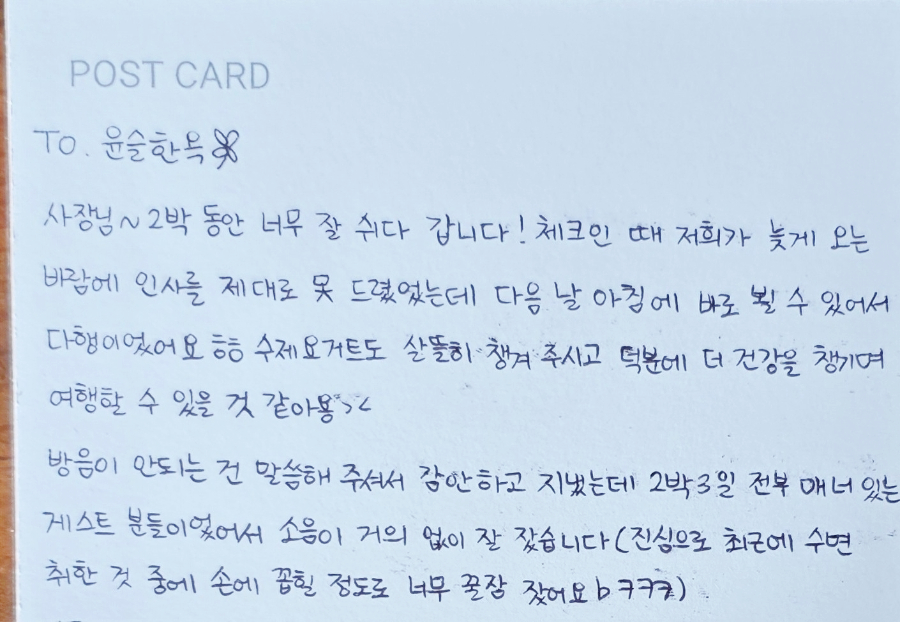 POST CARD
To. 윤슬한옥
사장님~ 2박 동안 너무 잘 쉬다 갑니다! 체크인 때 저희가 늦게 오는
바람에 인사를 제대로 못 드렸었는데 다음 날 아침에 바로 뵐 수 있어서
다행이었어요 ㅎㅎ 수제요거트도 살뜰히 챙겨 주시고 덕분에 더 건강을 챙기며
여행할 수 있을 것 같아용><
방음이 안되는 건 말씀해 주셔서 감안하고 지냈는데 2박3일 전부 매너있는
게스트 분들이었어서 소음이 거의 없이 잘 잤습니다(진심으로 최근에 수면
취한 것 중에 손에 꼽힐 정도로 너무 꿀잠 잤어요b ㅋㅋㅋ)